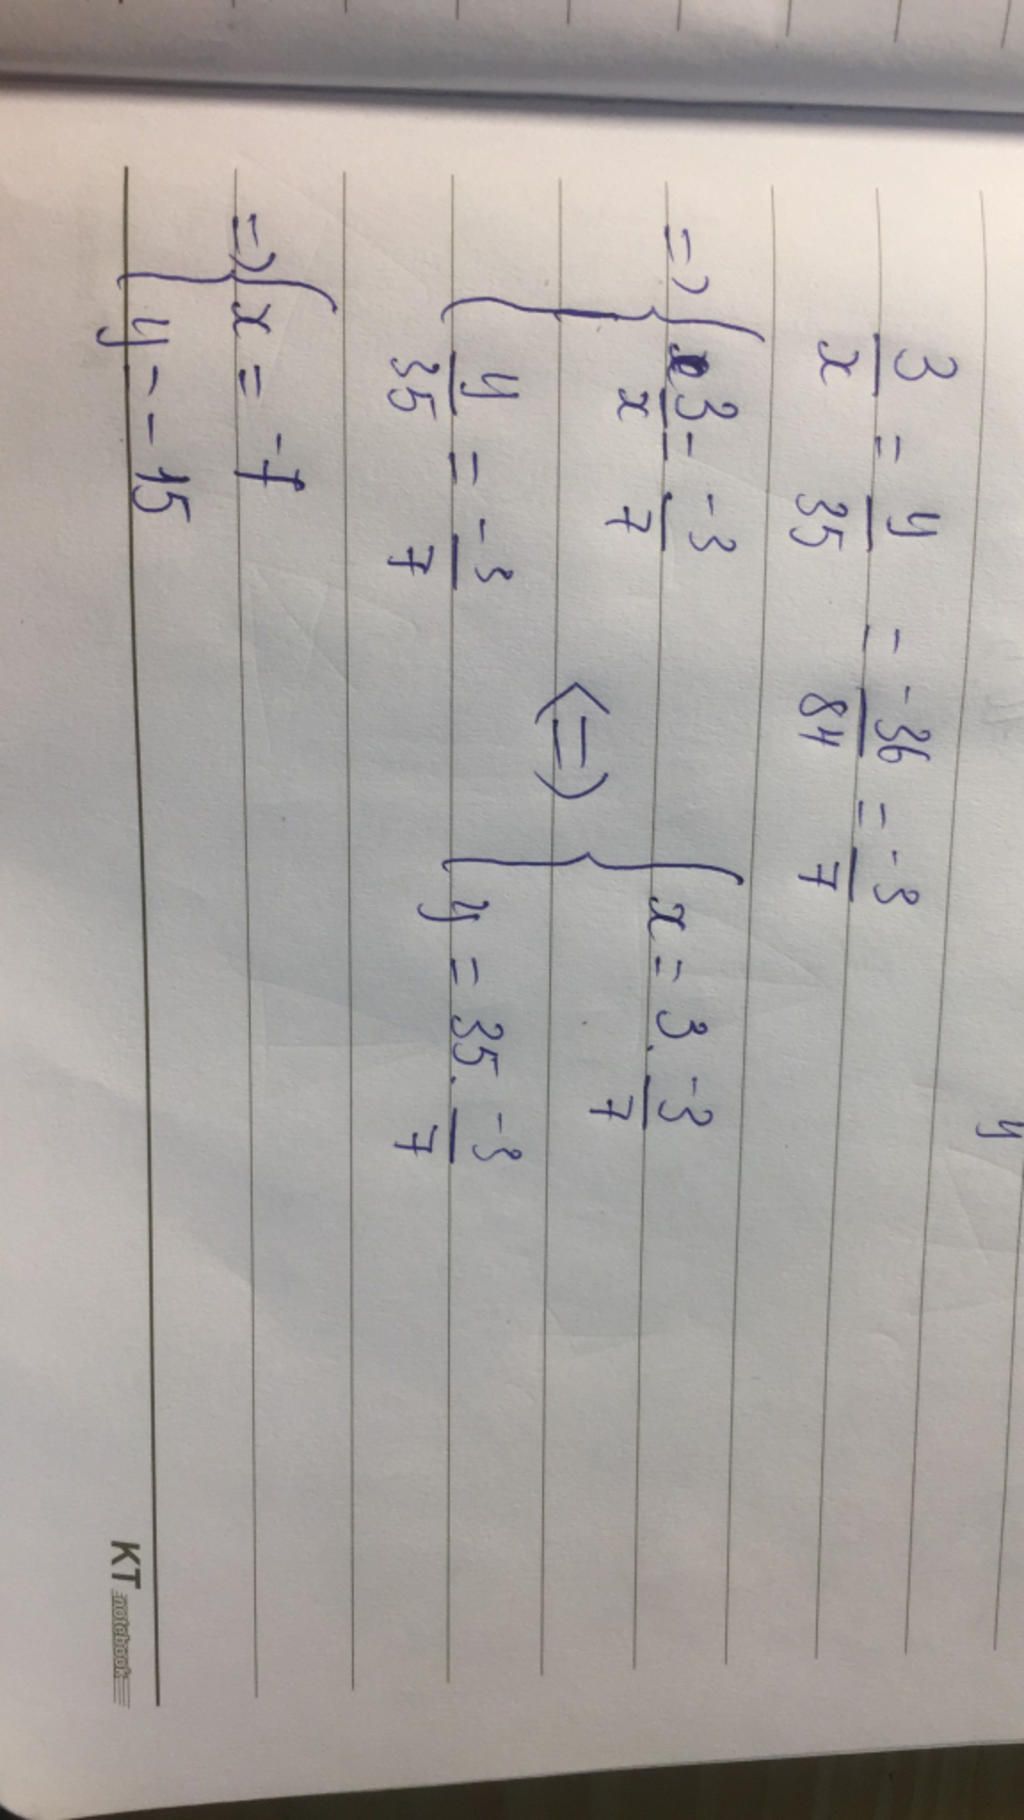 y
3/x = y/35 = -36/84 = -3/7
=> { 3/x = -3/7
y/35 = -3/7
<=> { x = 3. -3/7
y = 35. -3/7
=> { x = -7
y = -15
KT notebook